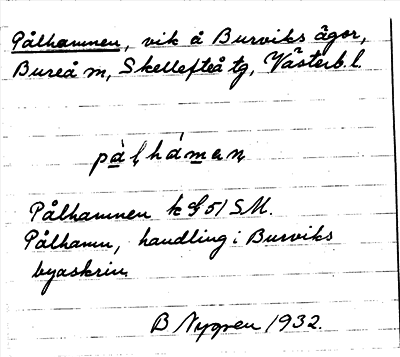 Pålhamnen, vik å Burviks ägor,
Bureå m, Skellefteå tg, Västerb. l.
Pålhamnen k G 51 SM.
Pålhamn, handling i Burviks
byaskrin
B Nygren 1932.